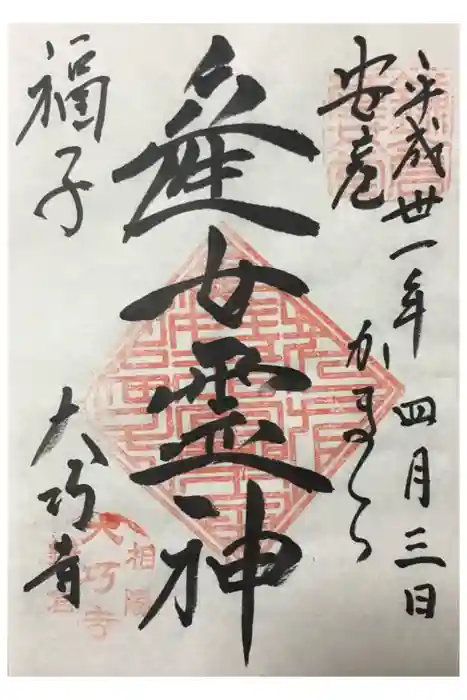 平成丗一年四月三日
安産
かまくら
産女霊神
福子
大巧寺
相陽
大巧寺